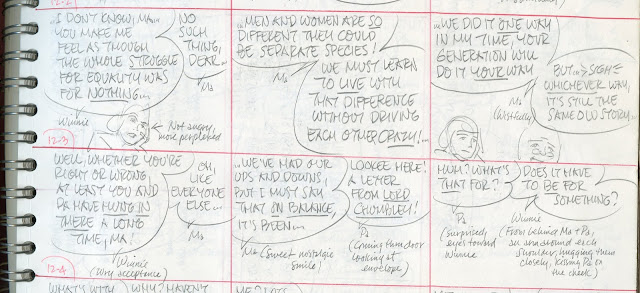 12-2
..I DON'T KNOW, MA...
YOU MAKE ME
FEEL AS THOUGH
THE WHOLE STRUGGLE
FOR EQUALITY WAS
FOR NOTHING...
Winnie
NO
SUCH
THING,
DEAR...
Ma
Not angry,
more perplexed
...MEN AND WOMEN ARE SO
DIFFERENT THEY COULD
BE SEPARATE SPECIES!
WE MUST LEARN
TO LIVE WITH
THAT DIFFERENCE
WITHOUT DRIVING
EACH OTHER CRAZY!...
Ma
...WE DID IT ONE WAY
IN MY TIME, YOUR
GENERATION WILL
DO IT YOUR WAY
Ma
(Wistfully)
BUT... >SIGH<
WHICHEVER WAY,
IT'S STILL THE
SAME OLD STORY...
12-3
WELL, WHETHER YOU'RE
RIGHT OR WRONG,
AT LEAST YOU AND
PA HAVE HUNG IN
THERE A LONG
TIME, MA!
Winnie
(Wry acceptance)
OH,
LIKE
EVERYONE
ELSE...
Ma
..WE'VE HAD OUR
UPS AND DOWNS,
BUT I MUST SAY
THAT ON BALANCE,
IT'S BEEN...
Ma (Sweet nostalgic
smile)
LOOKEE HERE!
A LETTER
FROM LORD
CHUMBLEY!
Pa
(Coming thru door
looking at
envelope)
HUH? WHAT'S
THAT FOR?
Pa
(Surprised,
eyes toward
Winnie
DOES IT HAVE
TO BE FOR
SOMETHING?
Winnie
(From behind Ma + Pa,
an arm around each
shoulder, hugging them
closely, kissing Pa on
the cheek)
12-4
WHAT'S
WHY? HAVEN'T
ME?